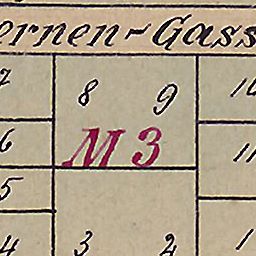 ernen-Gass
7 8 9 10
M 3
6 11
5
4 3 2 1